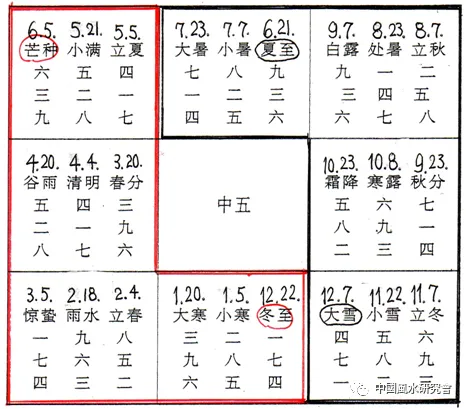 6.5. 5.21. 5.5.
芒种 小满 立夏
六 五 四
三 二 一
九 八 七
7.23. 7.7. 6.21.
大暑 小暑 夏至
七 八 九
一 二 三
四 五 六
9.7. 8.23. 8.7.
白露 处暑 立秋
九 一 二
三 四 五
六 七 八
4.20. 4.4. 3.20.
谷雨 清明 春分
五 四 三
二 一 九
八 七 六
中五
10.23. 10.8. 9.23.
霜降 寒露 秋分
五 六 七
八 九 一
二 三 四
3.5. 2.18. 2.4.
惊蛰 雨水 立春
一 九 八
七 六 五
四 三 二
1.20. 1.5. 12.22.
大寒 小寒 冬至
三 二 一
九 八 七
六 五 四
12.7. 11.22. 11.7.
大雪 小雪 立冬
四 五 六
七 八 九
一 二 三
中國風水研究會